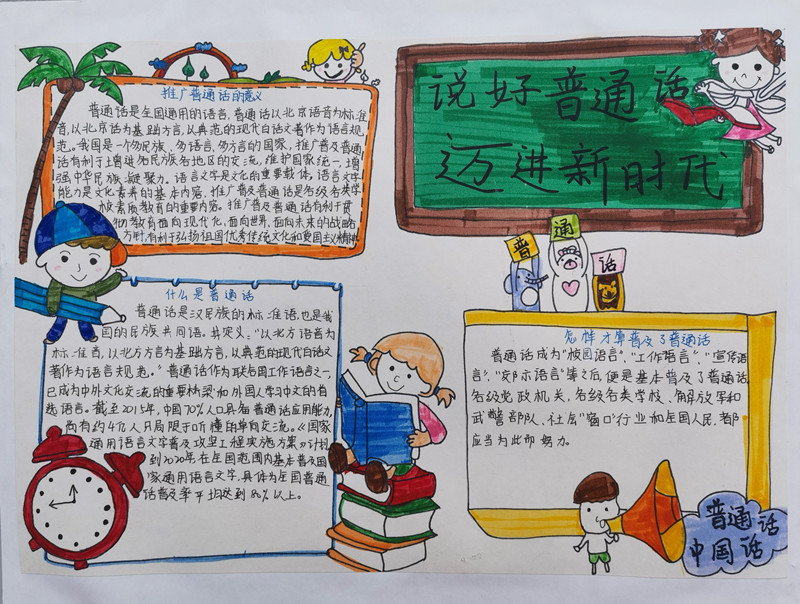 说好普通话
迈进新时代
推广普通话的意义
普通话是全国通用的语言,普通话以北京语音为标准
音,以北京话为基础方言,以典范的现代白话文著作为语言规
范。我国是一个多民族、多语言、多方言的国家,推广普及普通
话有利于增进各民族各地区的交流,维护国家统一,增
强中华民族凝聚力。语言文字是文化的重要载体,语言文字
能力是文化素养的基本内容,推广普及普通话是各级各类学
校素质教育的重要内容。推广普及普通话有利于贯
彻教育面向现代化,面向世界,面向未来的战略
方针,有利于弘扬祖国优秀传统文化和爱国主义精神
什么是普通话
普通话是汉民族的标准语,也是我
国的民族共同语。其定义:“以北方语音为
标准音,以北方方言为基础方言,以典范的现代白话文
著作为语言规范。”普通话作为联合国工作语言之一,
已成为中外文化交流的重要桥梁和外国人学习中文的首
选语言。截至2015年,中国70%人口具备普通话应用能力,
尚有约4亿人只局限于听懂的单向交流。《国家
通用语言文字普及攻坚工程实施方案》计划
到2020年,在全国范围内基本普及国
家通用语言文字,具体为全国普通
话普及率平均达到80%以上。
普
通
话
怎样才算普及了普通话
普通话成为“校园语言”、“工作语言”、“宣传语
言”、“交际语言”等之后,便是基本普及了普通话,
各级党政机关,各级各类学校、解放军和
武警部队、社会“窗口”行业和全国人民,都
应当为此而努力。
普通话
中国话